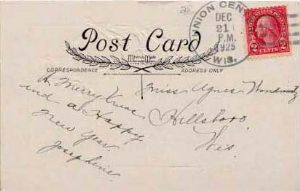 UNION CENTER
DEC
21
P.M.
1925
WIS.
2 CENTS 2
Post Card
CORRESPONDENCE
ADDRESS ONLY
A Merry Xmas
and a Happy
New Year.
Josephine
Miss Agnes
Hillsboro
Wis